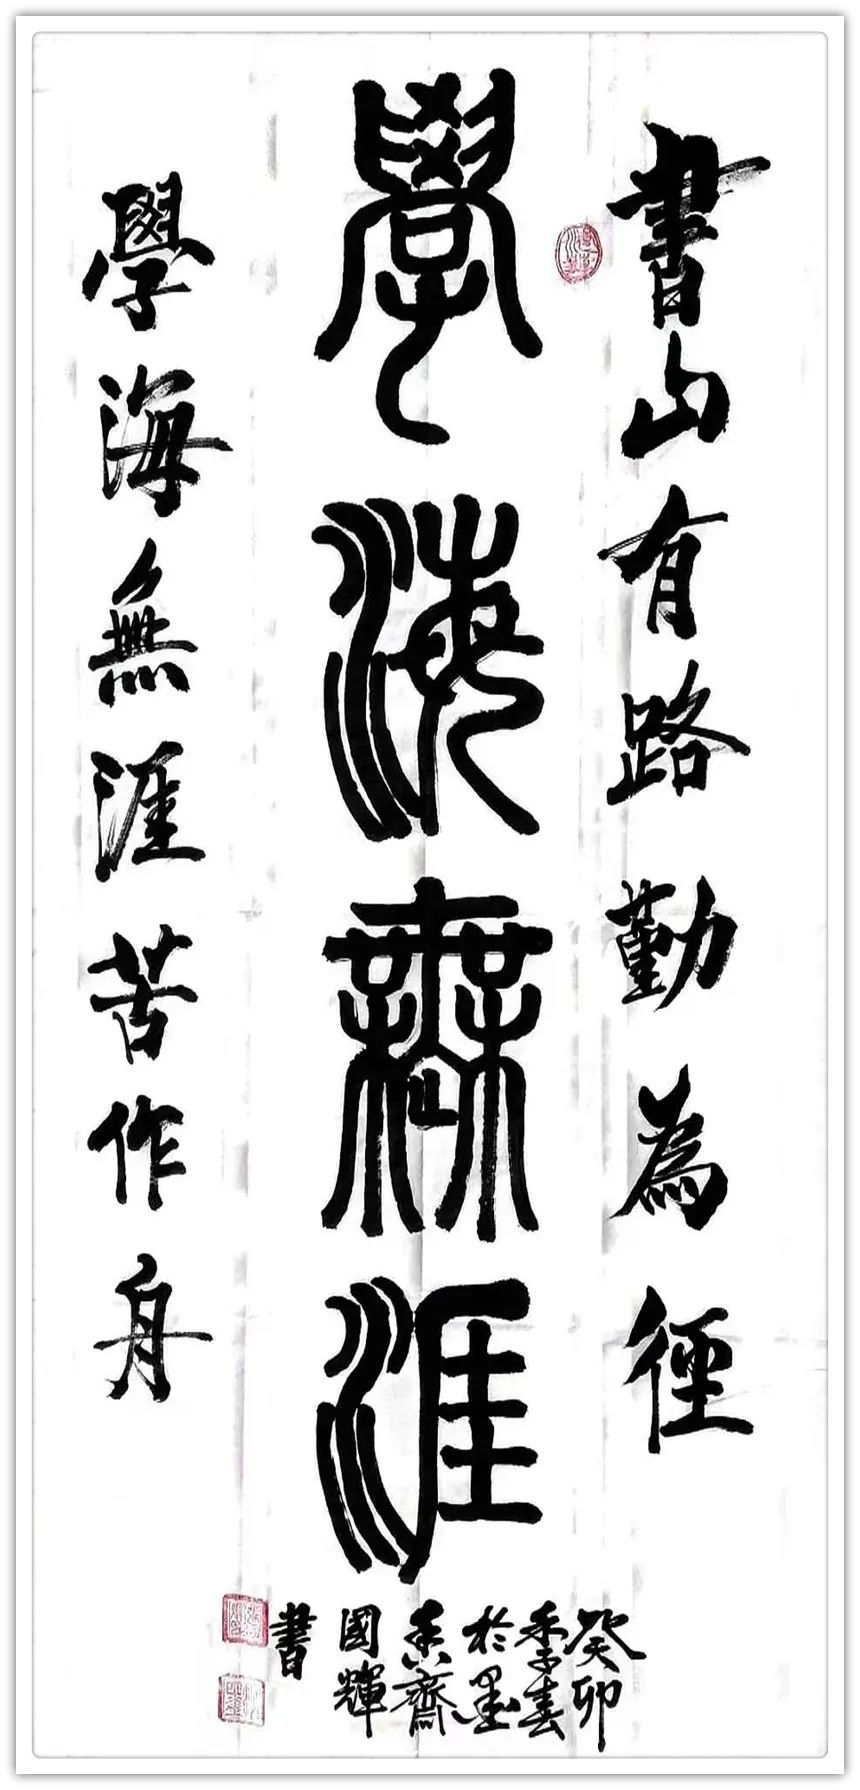 書山有路勤為徑
學海無涯
學海無涯苦作舟
癸卯
季春
於墨
香齋
國輝
書